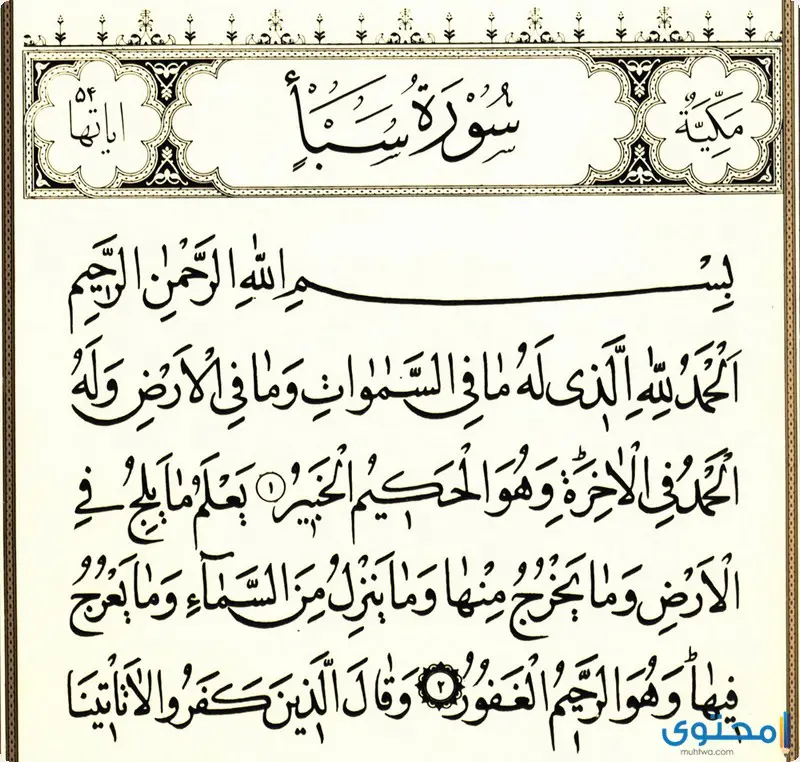 مَكِّيَّةٌ
سُورَةُ سَبَأٍ
اياتها ٥٤
بِسْمِ اللّٰهِ الرَّحْمٰنِ الرَّحِيمِ
اَلْحَمْدُ لِلّٰهِ الَّذِى لَهُ مَا فِى السَّمٰوَاتِ وَمَا فِى الْاَرْضِ وَلَهُ
الْحَمْدُ فِى الْاٰخِرَةِ وَهُوَ الْحَكِيمُ الْخَبِيرُ ١ يَعْلَمُ مَا يَلِجُ فِى
الْاَرْضِ وَمَا يَخْرُجُ مِنْهَا وَمَا يَنْزِلُ مِنَ السَّمَاۤءِ وَمَا يَعْرُجُ
فِيهَا وَهُوَ الرَّحِيمُ الْغَفُورُ ٢ وَقَالَ الَّذِينَ كَفَرُوا لَا تَاْتِينَا
محتوى
muhtwa.com